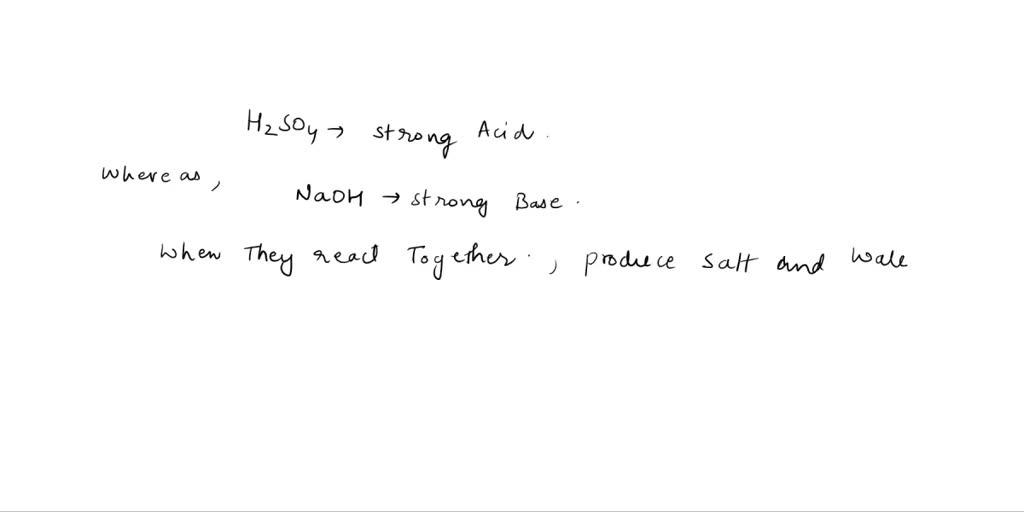 H₂SO₄ → strong Acid.
where as,
NaOH → strong Base.
when They react Together., produce salt and wate